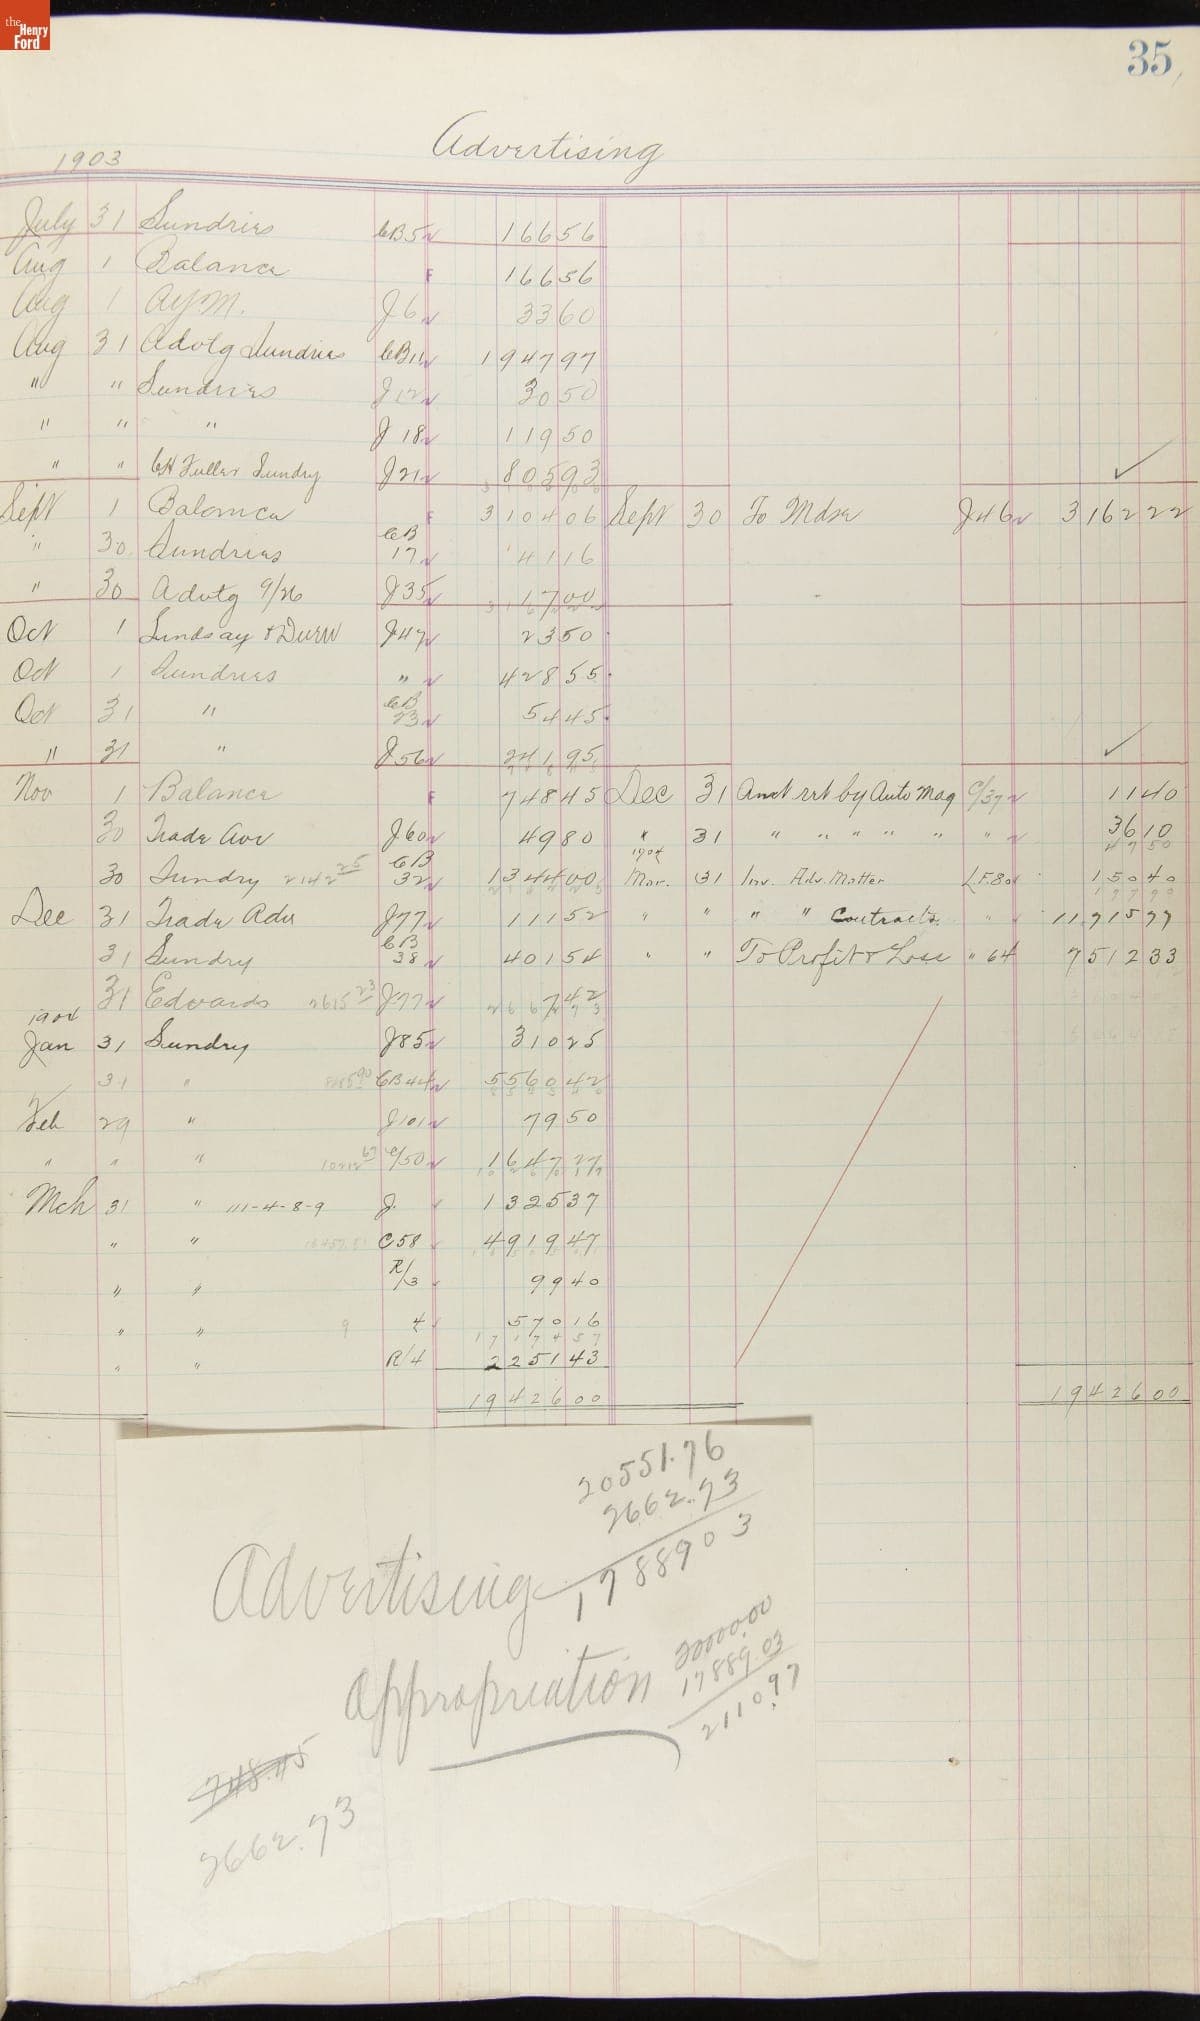 the Henry Ford
35
Advertising
1903
July 31 Sundries CB5 166 56
Aug 1 Balance F 166 56
Aug 1 J6 33 60
Aug 31 Advtg Sundries CB11 1947 97
" " Sundries J12 30 50
" " " J18 119 50
" " CH Fuller Sundry J21 805 93
Sept 1 Balance F 3104 06 Sept 30 To Mdse J46 3162 22
" 30 Sundries CB 17 41 16
" 30 Advtg 9/26 J35 17 00
Oct 1 Lindsay & J47 23 50
Oct 1 Sundries " 428 55
Oct 31 " CB 23 54 45
" 31 " J56 241 95
Nov 1 Balance F 748 45 Dec 31 Amt by Auto Mag C/37 11 40
30 Trade Adv J60 49 80 " 31 " " " " " " 36 10
30 Sundry 2142 25 CB 32 1344 00 1904 Mar. 31 Inv. Adv. Matter 150 40
Dec 31 Trade Adv J77 111 52 " " " " Contracts " 11715 77
31 Sundry CB 38 401 54 " " To Profit & Loss " 64 7512 33
31 Edwards 2615 23 J77 7 42
2662 73
1904
Jan 31 Sundry J85 310 25
31 " CB44 5560 42
Feb 29 " J101 79 50
" " " C/50 1647 27
Mch 31 " 111-4-8-9 J. 1325 37
" " C58 4919 47
" " R/3 99 40
" " 4 570 16
17174 57
" " R/4 2251 43
19426 00 19426 00
20551.76
2662.73
17889 03
Advertising
appropriation
20000.00
17889.03
2110.97
748.45
2662.73